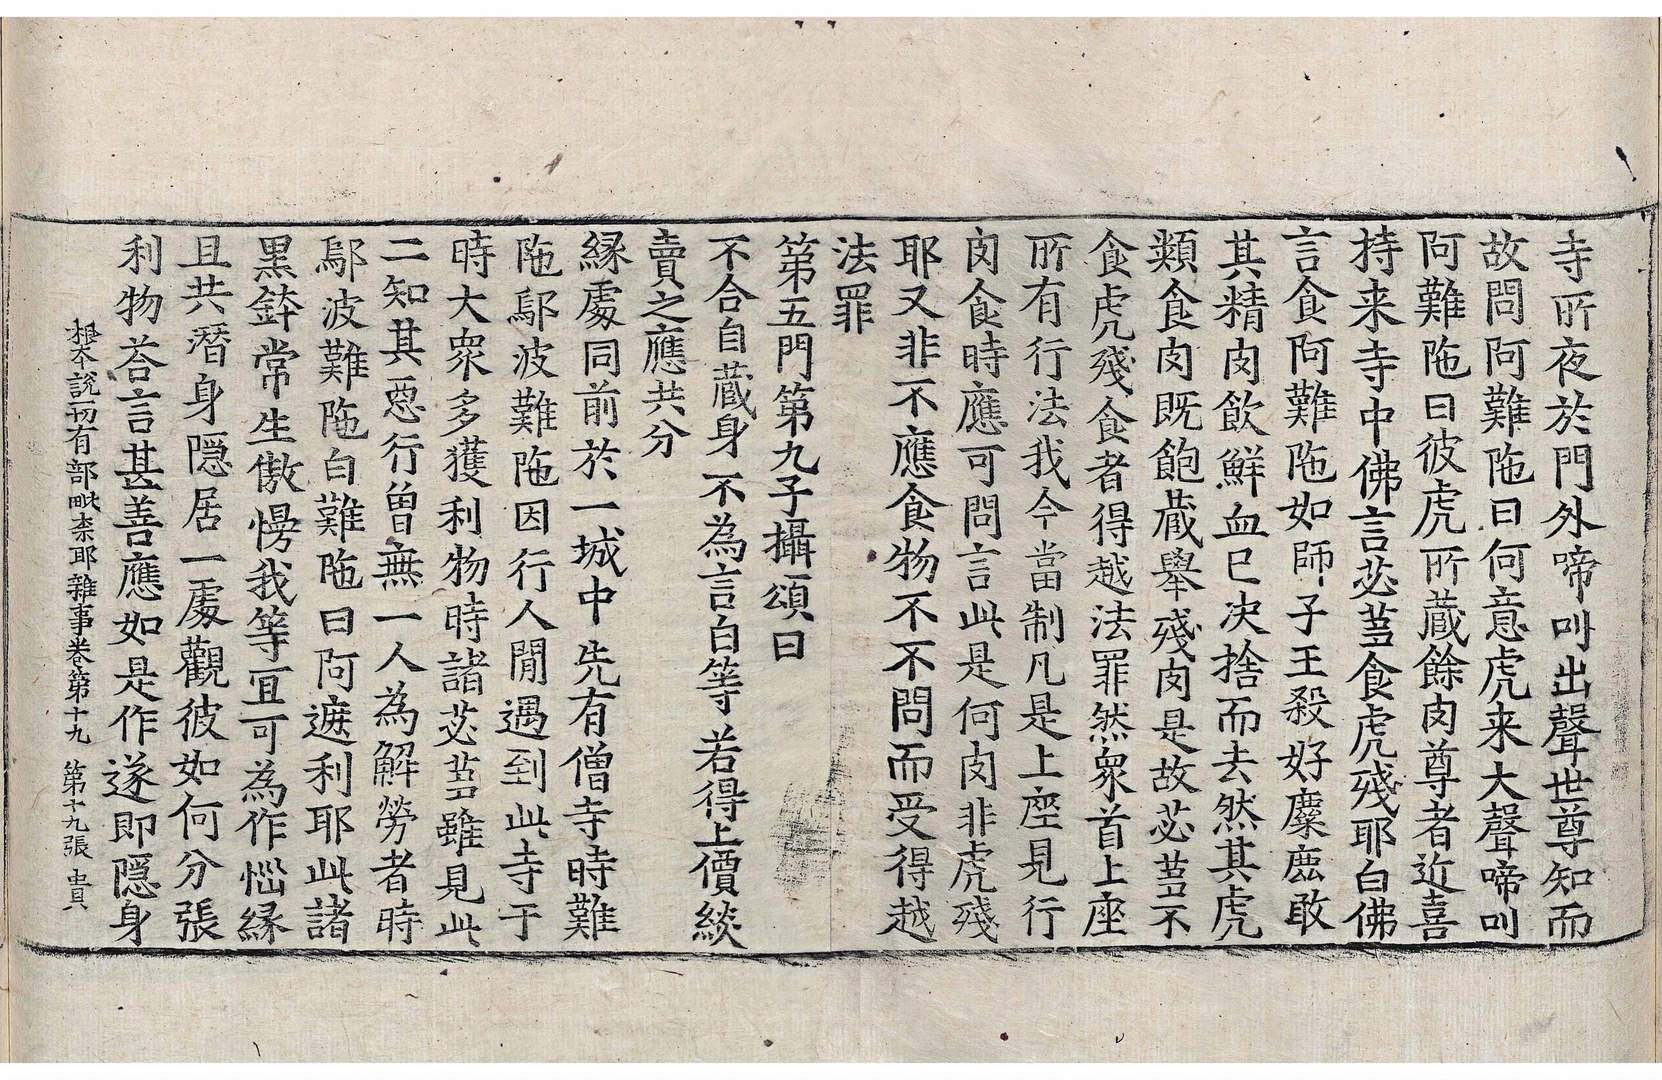 寺所夜於門外啼叫出聲世尊知而
故問阿難陁曰何意虎来大聲啼叫
阿難陁曰彼虎所藏餘肉尊者近喜
持来寺中佛言苾蒭食虎殘耶白佛
言食阿難陁如師子王殺好麋鹿敢
其精肉飲鮮血已决捨而去然其虎
類食肉既飽藏舉殘肉是故苾蒭不
食虎殘食者得越法罪然衆首上座
所有行法我今當制凡是上座見行
肉食時應可問言此是何肉非虎殘
耶又非不應食物不不問而受得越
法罪
第五門第九子攝頌曰
不合自藏身 不為言白等 若得上價緂
賣之應共分
縁處同前於一城中先有僧寺時難
陁鄔波難陁因行人閒遇到此寺于
時大衆多獲利物時諸苾蒭雖見此
二知其惡行曾無一人為解勞者時
鄔波難陁白難陁曰阿遮利耶此諸
黒鉢常生傲慢我等宜可為作惱縁
且共潛身隱居一處觀彼如何分張
利物荅言甚善應如是作遂即隱身
根本說一切有部毗柰耶雜事卷第十九 第十九張 貴